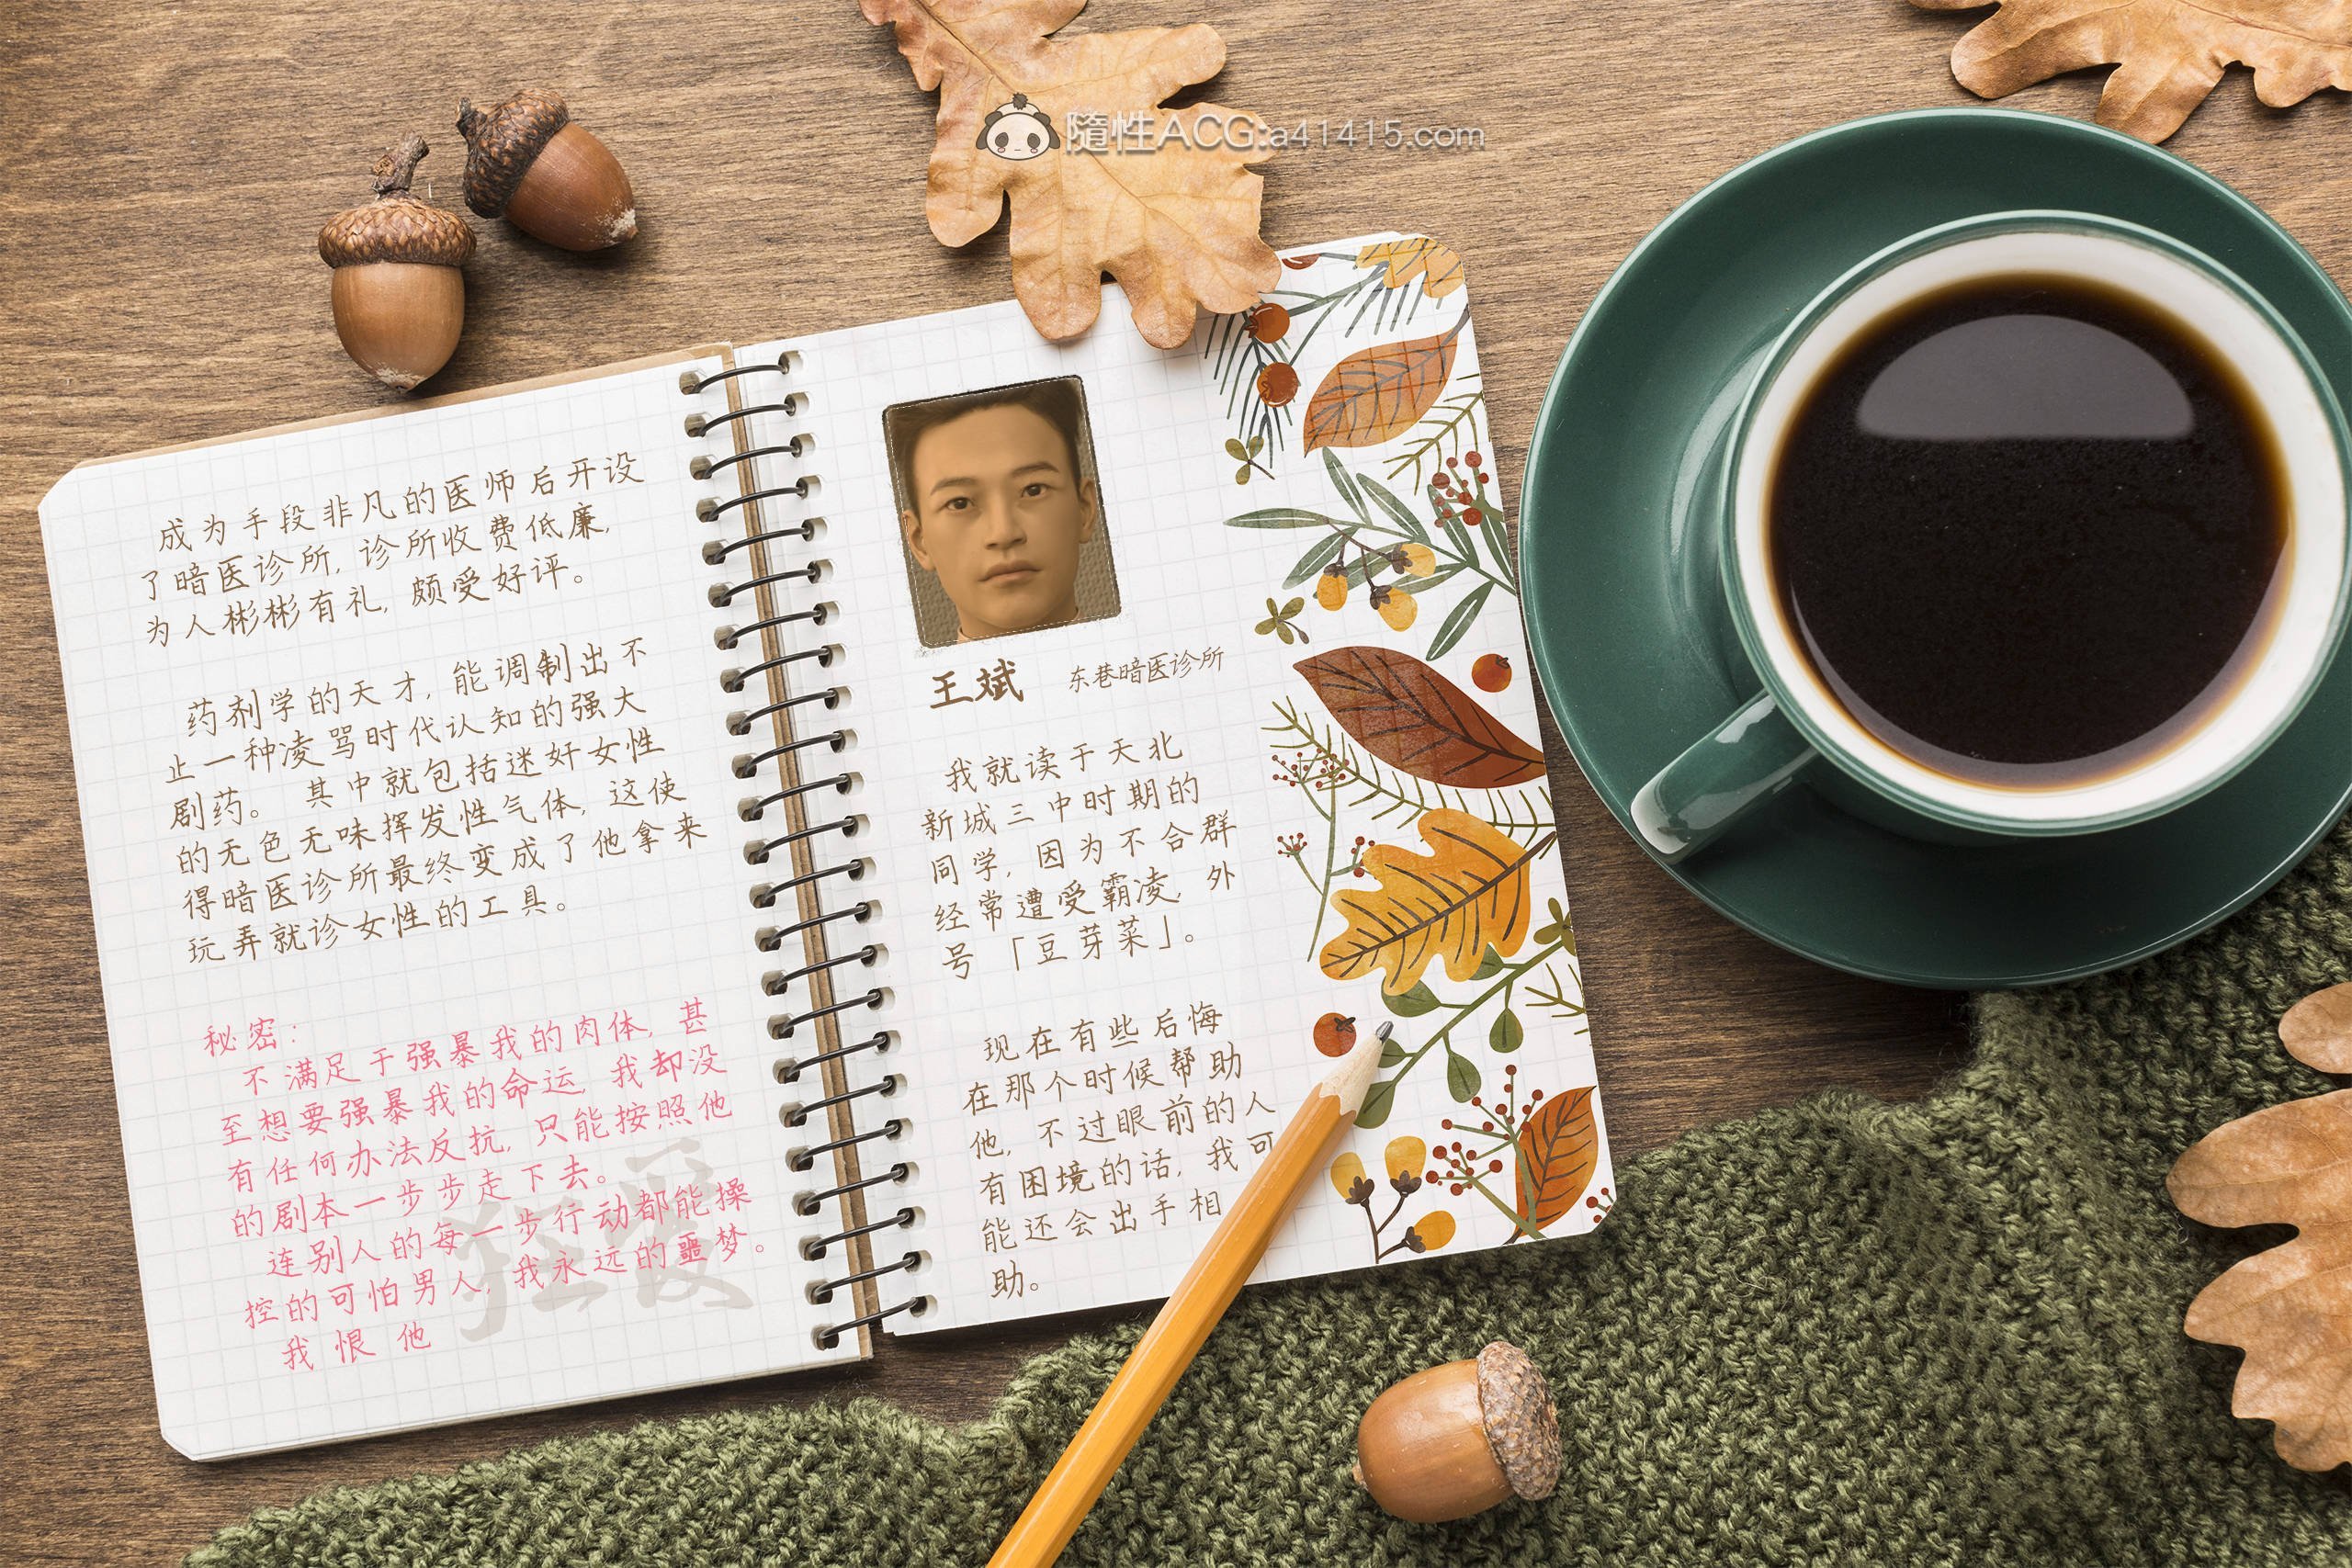 隨性ACG:a41415.com
成为手段非凡的医师后开设
了暗医诊所,诊所收费低廉,
为人彬彬有礼,颇受好评。
药剂学的天才,能调制出不
止一种凌骂时代认知的强大
剧药。其中就包括迷奸女性
的无色无味挥发性气体,这使
得暗医诊所最终变成了他拿来
玩弄就诊女性的工具。
秘密:
不满足于强暴我的肉体,甚
至想要强暴我的命运,我却没
有任何办法反抗,只能按照他
的剧本一步步走下去。
连别人的每一步行动都能操
控的可怕男人,我永远的噩梦。
我恨他
狂爱
王斌 东巷暗医诊所
我就读于天北
新城三中时期的
同学,因为不合群
经常遭受霸凌,外
号「豆芽菜」。
现在有些后悔
在那个时候帮助
他,不过眼前的人
有困境的话,我可
能还会出手相
助。